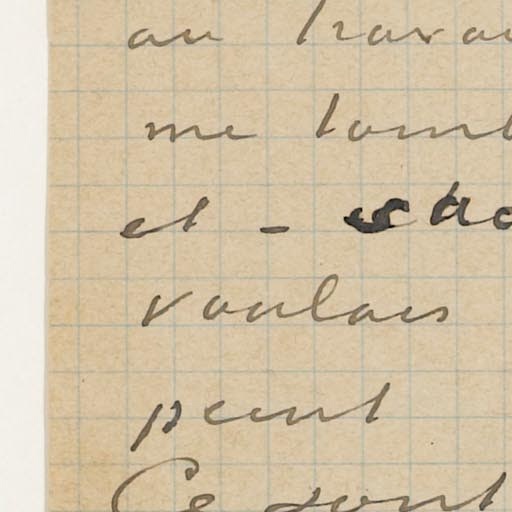 au trava
me tomb
et - sac
voulais
peint
Ce sont